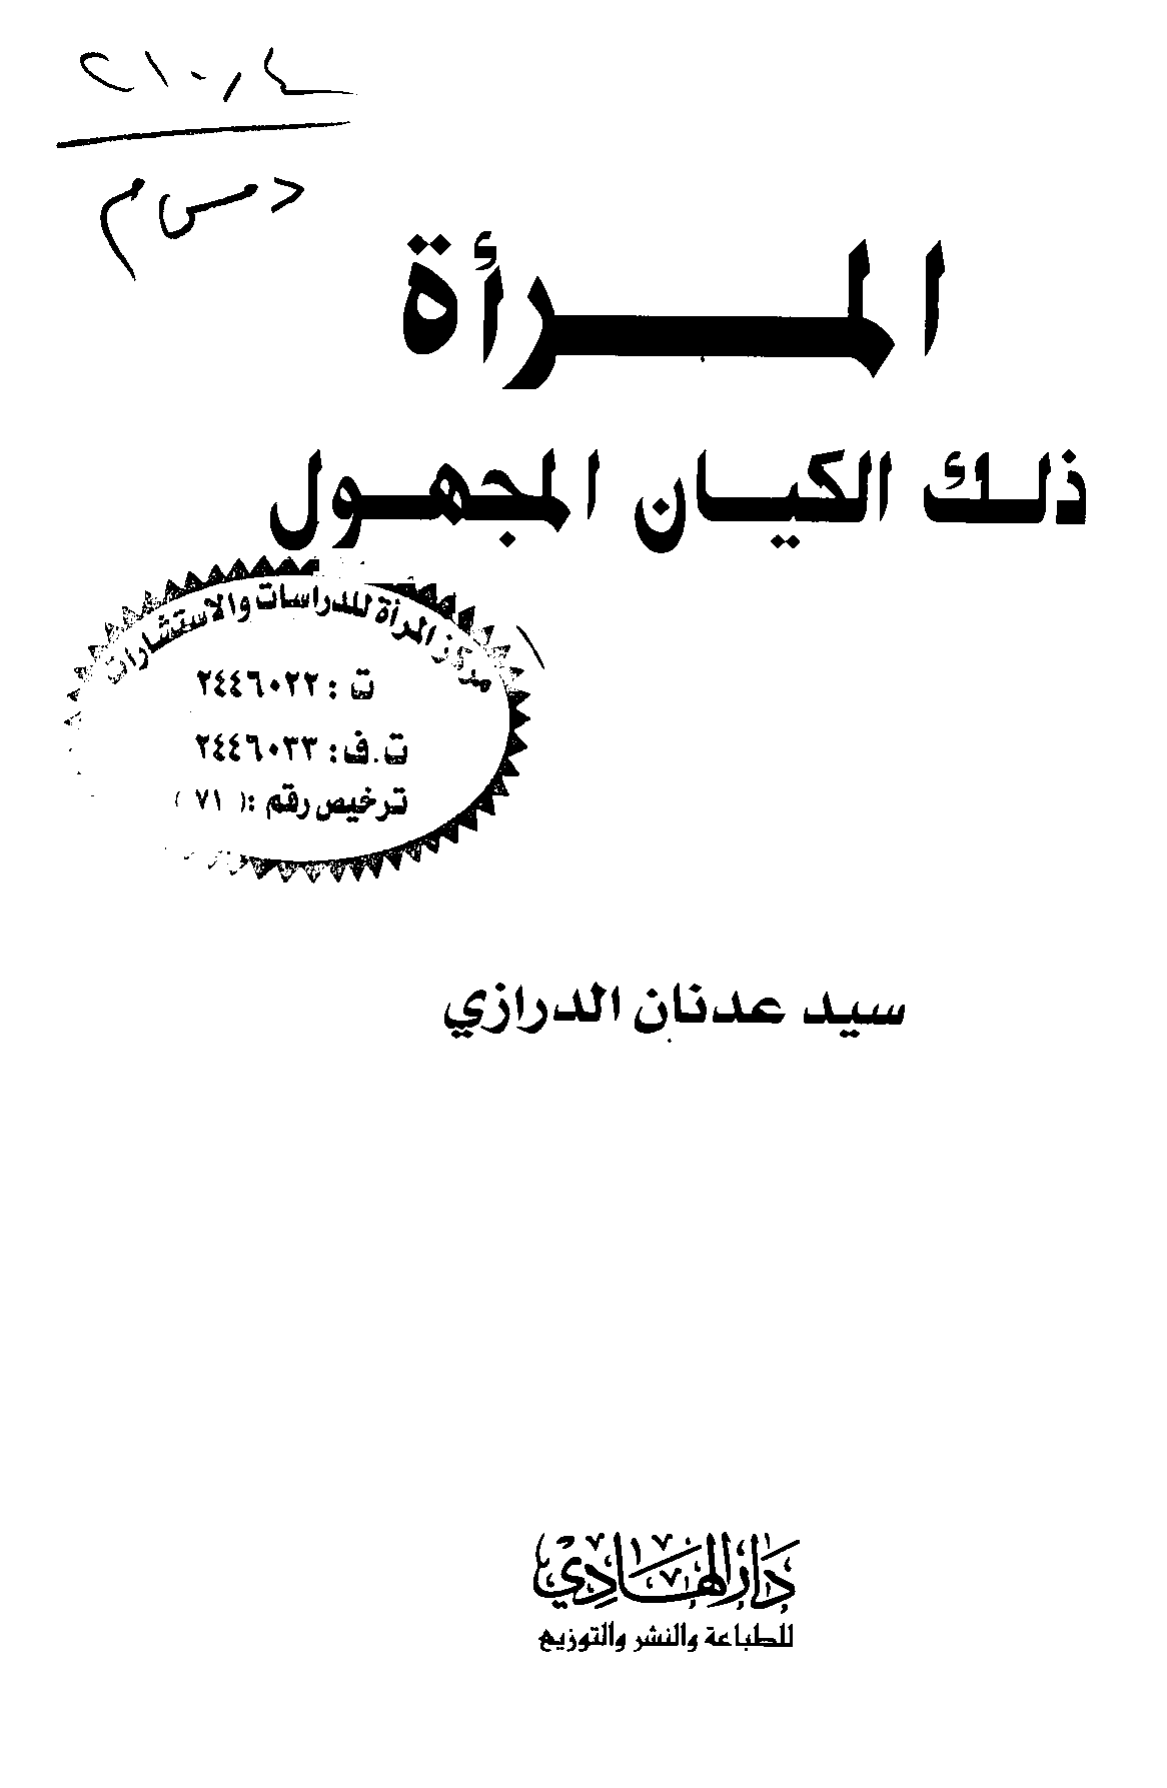 د س م
المرأة
ذلك الكيان المجهول
مركز المرأة للدراسات والاستشارات
ت : ٢٤٤٦٠٢٢
ت.ف: ٢٤٤٦٠٣٣
ترخيص رقم :( ٧١ )
سيد عدنان الدرازي
دار الهادي
للطباعة والنشر والتوزيع